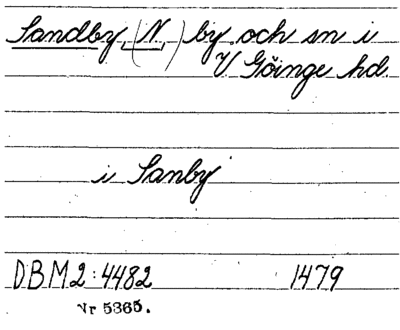 Sandby, (N,) by och sn i
V Göinge hd.
i Sanby
DBM2:4482 1479
Nr 5365.